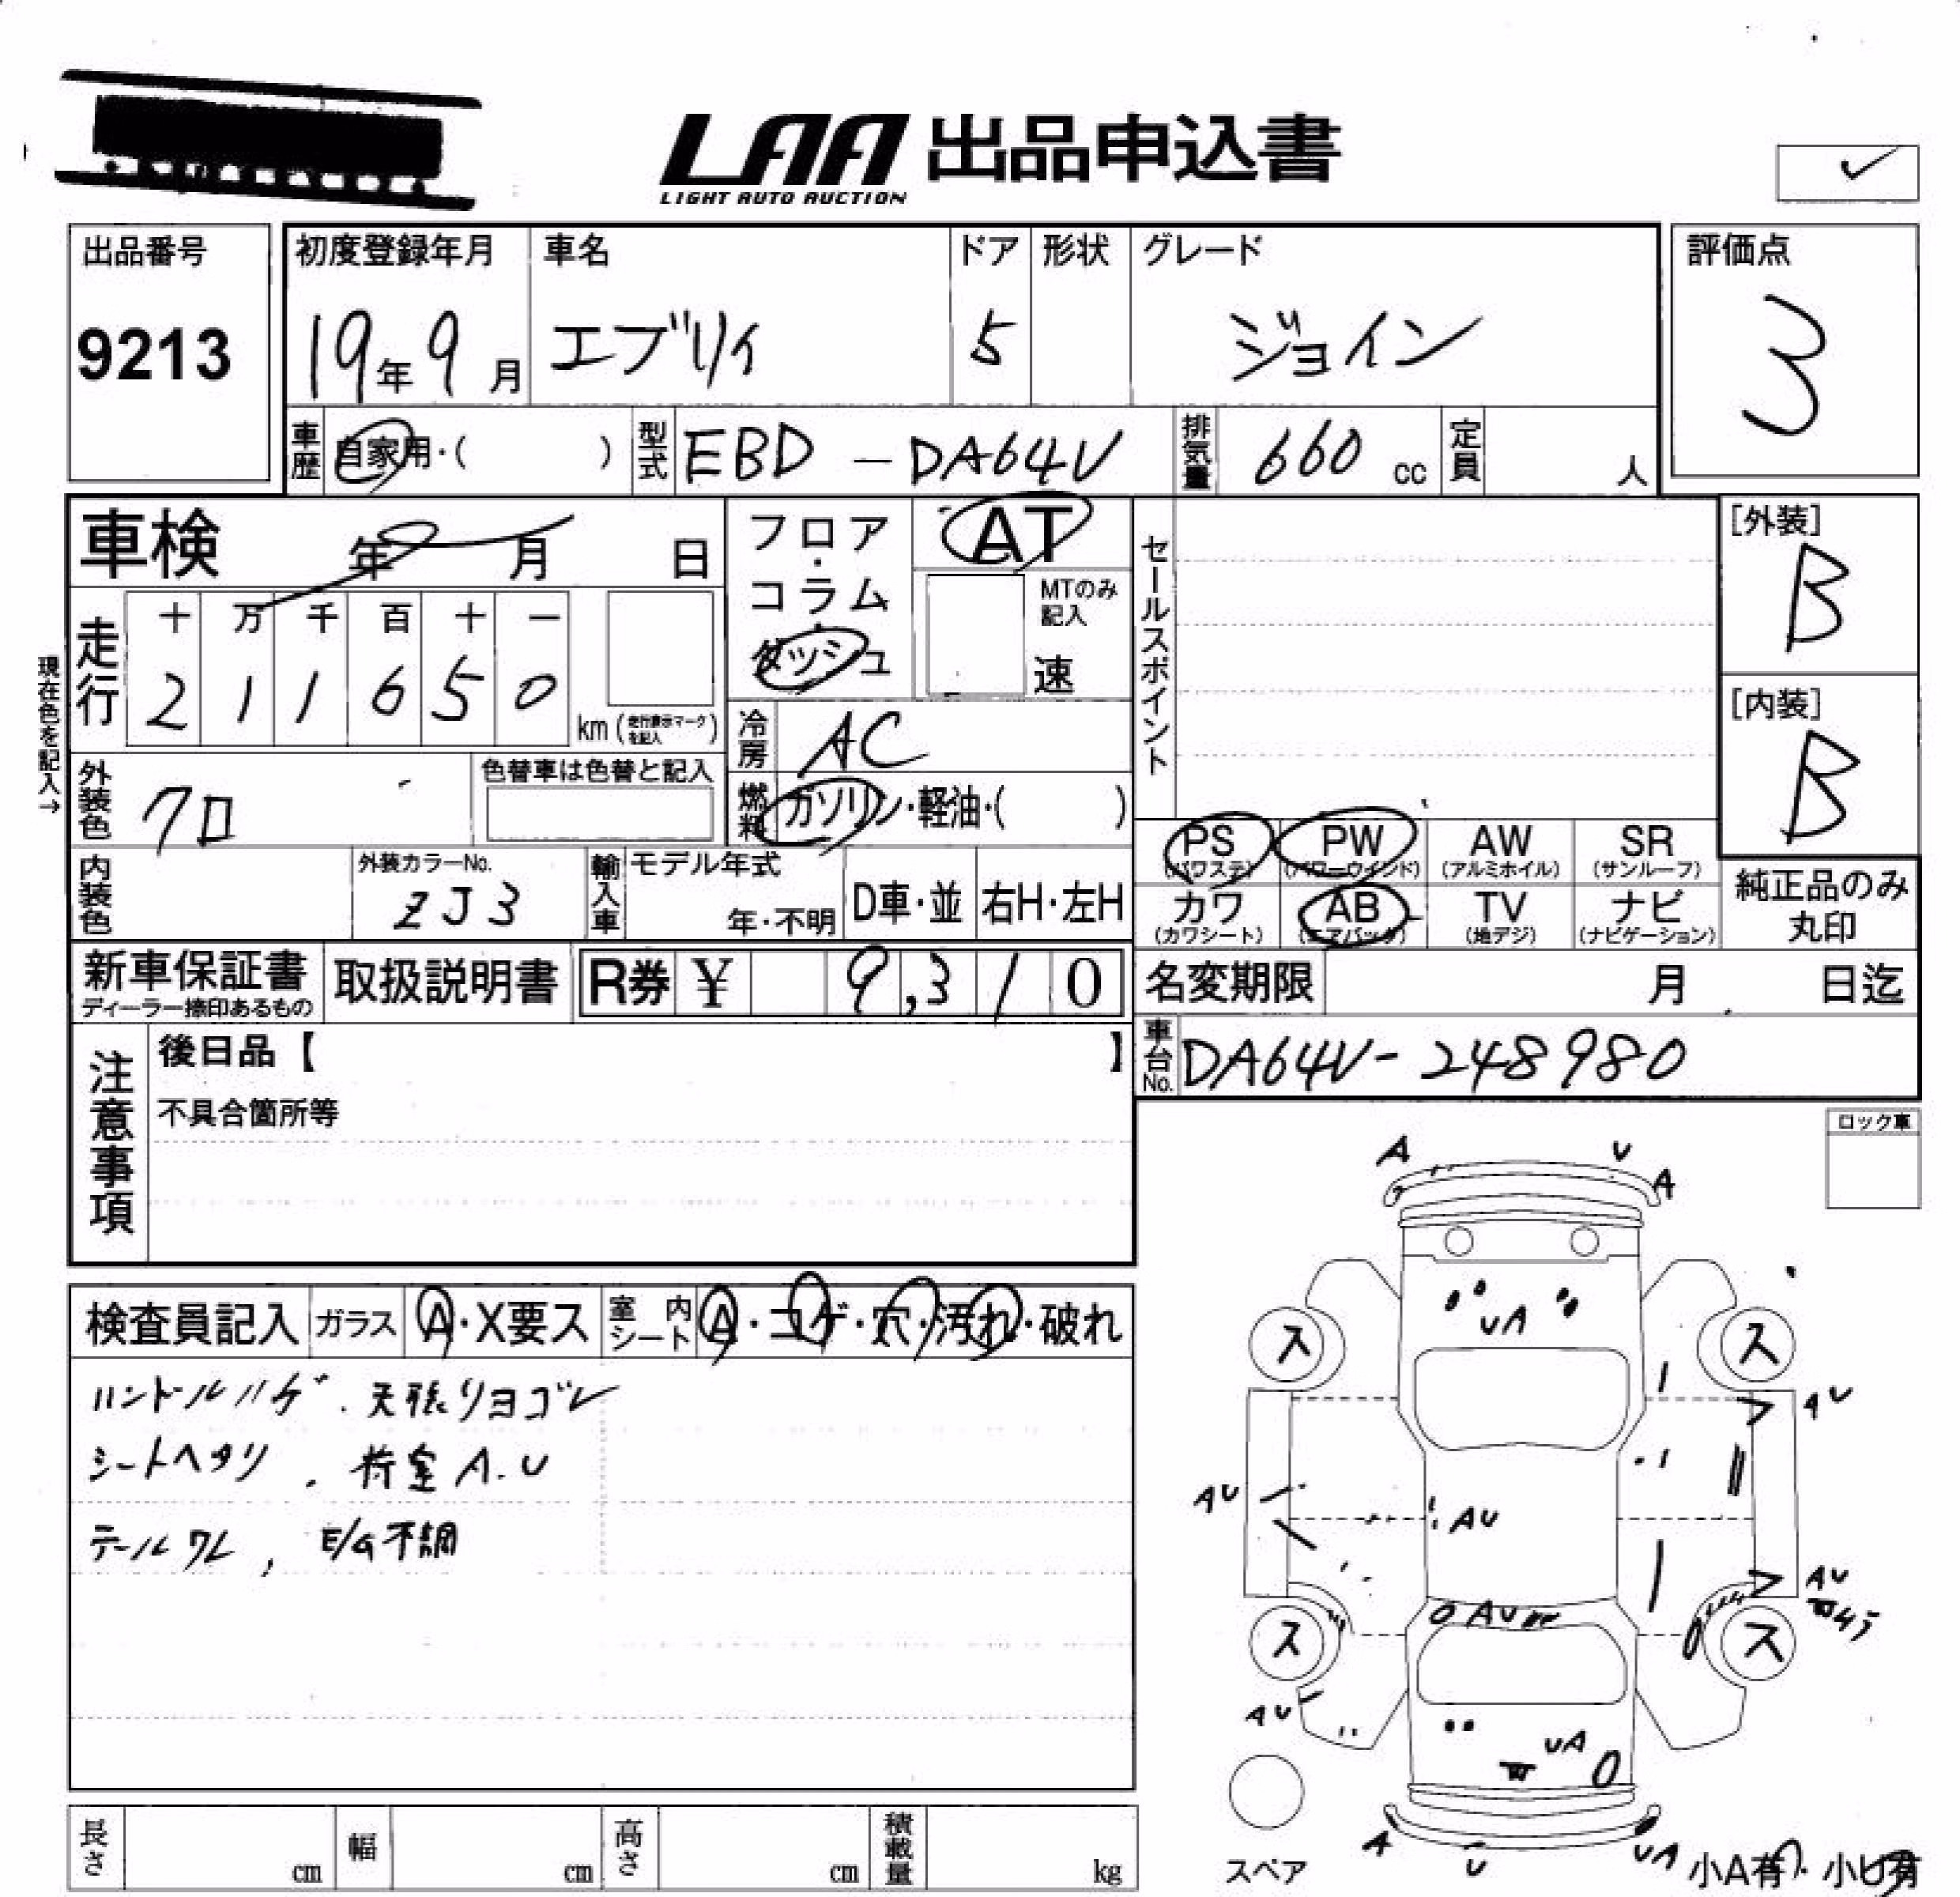 LAA 出品申込書
LIGHT AUTO AUCTION
出品番号
9213
初度登録年月
19年9月
車名
エブリィ
ドア
5
形状
グレード
ジョイン
評価点
3
車歴
自家用・( )
型式
EBD-DA64V
排気量
660 cc
定員
人
車検 年 月 日
フロア・コラム・ダッシュ
AT
MTのみ記入
速
セールスポイント
[外装]
B
[内装]
B
現在色を記入→
走行
十 万 千 百 十 一
2 1 1 6 5 0
km (走行表示マークを記入)
冷房
AC
外装色
クロ
色替車は色替と記入
燃料
ガソリン・軽油・( )
PS
(パワステ)
PW
(パワーウインド)
AW
(アルミホイル)
SR
(サンルーフ)
内装色
外装カラーNo.
ZJ3
輸入車
モデル年式
年・不明
D車・並
右H・左H
カワ
(カワシート)
AB
(エアバッグ)
TV
(地デジ)
ナビ
(ナビゲーション)
純正品のみ
丸印
新車保証書
ディーラー捺印あるもの
取扱説明書
R券 ¥ 9,310
名変期限 月 日迄
車台No.
DA64V-248980
注意事項
後日品【 】
不具合箇所等
ロック車
検査員記入
ガラス
A・X要ス
室内シート
A・コゲ・穴・汚れ・破れ
ハンドルハゲ.天張リヨゴレ
シートヘタリ.荷室A.U
テールワレ,E/G不調
A U
A
UA
ス ス
AU
AU
AU
AU
AU
ス ス
AU
UA
A U UA
スペア
小A有・小U有
長さ cm
幅 cm
高さ cm
積載量 kg